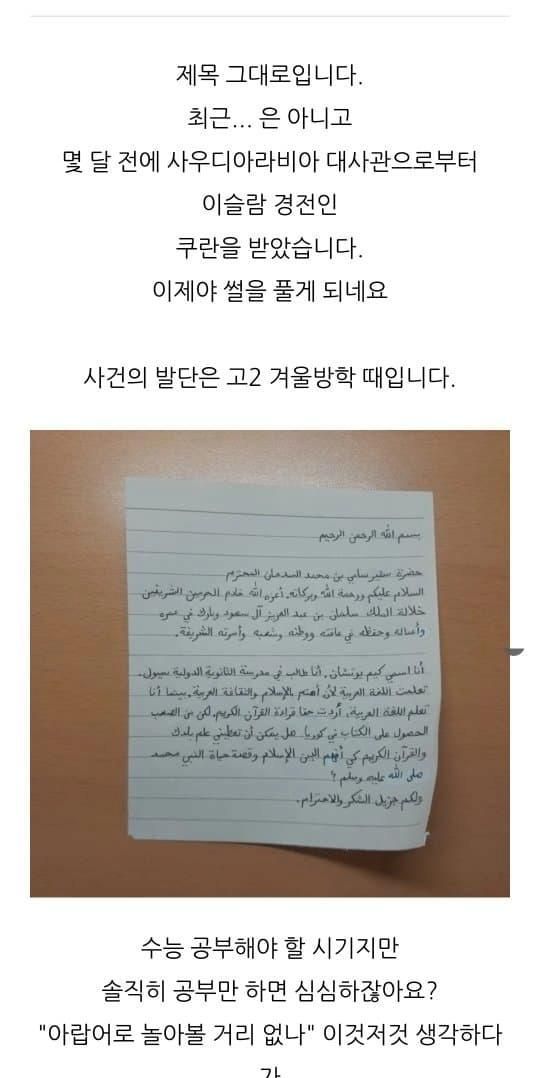 제목 그대로입니다.
최근... 은 아니고
몇 달 전에 사우디아라비아 대사관으로부터
이슬람 경전인
쿠란을 받았습니다.
이제야 썰을 풀게 되네요
사건의 발단은 고2 겨울방학 때입니다.
بسم الله الرحمن الرحيم
حضرة سفير سامي بن محمد السدحان المحترم
السلام عليكم ورحمة الله وبركاته. أعزه الله خادم الحرمين الشريفين
خلالة الملك سلمان بن عبد العزيز آل سعود وبارك في عمره
وأعماله وحفظه في عافته ووطنه وشعبه وأسرته الشريفة.
أنا اسمي كيم يونتشان. أنا طالب في مدرسة الثانوية الدولية بسيول.
تعلمت اللغة العربية لأن أهتم بالإسلام والثقافة العربية. بينما أنا
تعلم اللغة العربية، أردت حقا قراءة القرآن الكريم. لكن من الصعب
الحصول على الكتاب في كوريا. هل يمكن أن تعطيني علم بلدك
والقرآن الكريم كي أفهم الدين الإسلام وقصة حياة النبي محمد
صلى الله عليه وسلم؟
ولكم جزيل الشكر والاحترام.
수능 공부해야 할 시기지만
솔직히 공부만 하면 심심하잖아요?
"아랍어로 놀아볼 거리 없나" 이것저것 생각하다
가